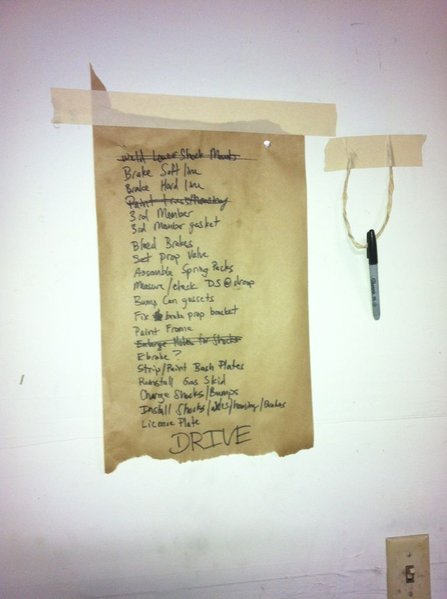 Weld Lower Shock Mounts
Brake Soft line
Brake Hard line
Paint truss/housing
3rd Member
3rd Member gasket
Bleed Brakes
Set Prop Valve
Assemble Spring Packs
Measure/check DS @ droop
Bump Can gussets
Fix brake prop bracket
Paint Frame
Enlarge Holes for Shocks
Ebrake?
Strip/Paint Bash Plates
Reinstall Gas Skid
Charge Shocks/Bumps
Install Shocks/axles/housing/Brakes
License Plate
DRIVE
Sharpie